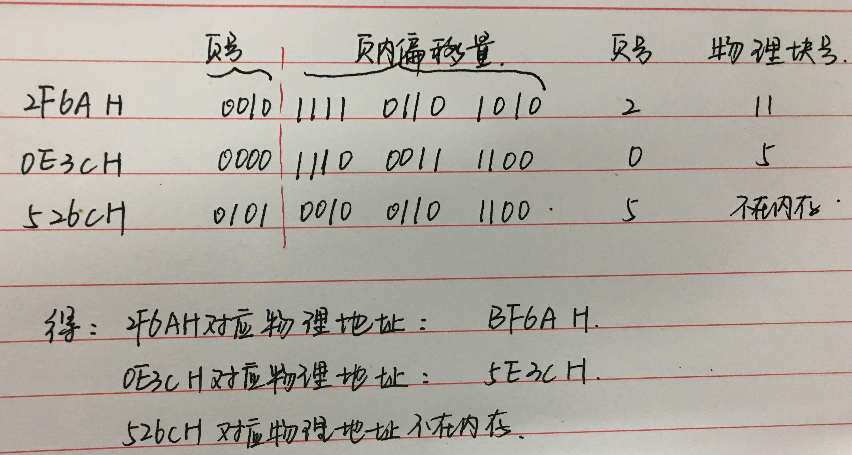 页号 页内偏移量. 页号 物理块号.
2F6A H 0010 1111 0110 1010 2 11
0E3CH 0000 1110 0011 1100 0 5
526CH 0101 0010 0110 1100 . 5 不在内存.
得: 2F6AH对应物理地址: BF6A H.
0E3CH对应物理地址: 5E3CH.
526CH 对应物理地址不在内存.